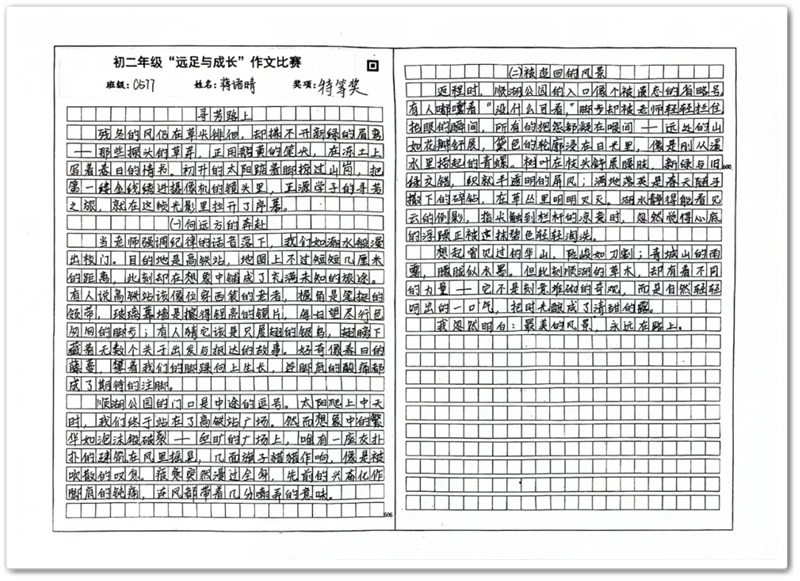 初二年级“远足与成长”作文比赛
班级：0517 姓名：蒋诺晴 奖项：特等奖
寻芳路上
残冬的风仍在草尖徘徊，却撞不开新绿的眉骂
—那些探头的草芽，正用鹅黄的笔尖，在冻土上
写着春日的情书。初升的太阳踮着脚掠过山岗，把
第一缕金线缝进摄像机的镜头里，正源学子的寻芳
之旅，就在这帧光影里拉开了序幕。
(一)向远方的奔赴
当老师强调纪律的话音落下，我们如潮水般漫
出校门。目的地是高铁站，地图上不过短短几厘米
的距离，此刻却在想象中铺成了充满未知的旅途。
有人说高铁站该像位穿西装的老者，檐角是笔挺的
领带，玻璃幕墙是擦得锃亮的镜片，每日望尽行色
匆匆的脚步；有人猜它该是只展翅的银鸟，翅膀下
藏着无数个关于出发与抵达的故事。好奇像春日的
藤蔓，攀着我们的脚踝向上生长，连脚底的酸痛都
成了期待的注脚。
顺湖公园的门口是中途的逗号。太阳爬上中天
时，我们终于站在了高铁站广场。然而想象中的繁
华如泡沫般破裂—空旷的广场上，唯有一座灰扑
扑的建筑在风里摇晃，几面旗子猎猎作响，像是被
吹散的叹息。疲惫突然漫过全身，先前的兴奋化作
脚底的钝痛，连风都带着几分嘲弄的意味。
506
(二)被追回的风景
返程时，顺湖公园的入口像个被遗忘的省略号
有人嘟囔着“没什么可看，”脚步却被老师轻轻拦住
抬眼的瞬间，所有的抱怨都凝在喉间—远处的山
如花瓣舒展，黛色的轮廓浸在日光里，像是刚从溪
水里捞起的青螺。树叶在枝头舒展腰肢，新绿与旧
绿交错，织就半透明的屏风；满地落英是春天随手
撒下的碎钻，在草丛里明明灭灭。湖水静得能看见
云的倒影，指尖触到栏杆的凉意时，忽然觉得心底
的浮躁正被这抹碧色轻轻淘洗。
想起曾见过的华山，陡峻如刀割；青城山的雨
雾，朦胧似水墨。但此刻顺湖的草木，却有着不同
的力量—它不是刻意堆砌的奇观，而是自然轻轻
呵出的一口气，把时光酿成了清甜的露。
我忽然明白：最美的风景，永远在路上。